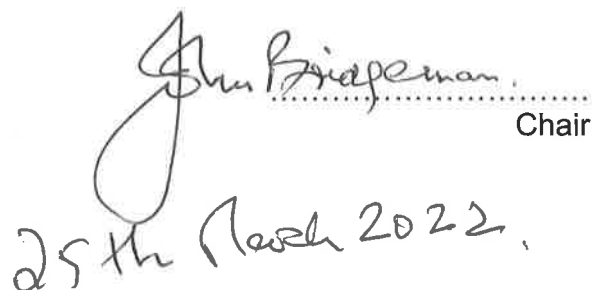 John Bridgeman.
Chair
25th March 2022.